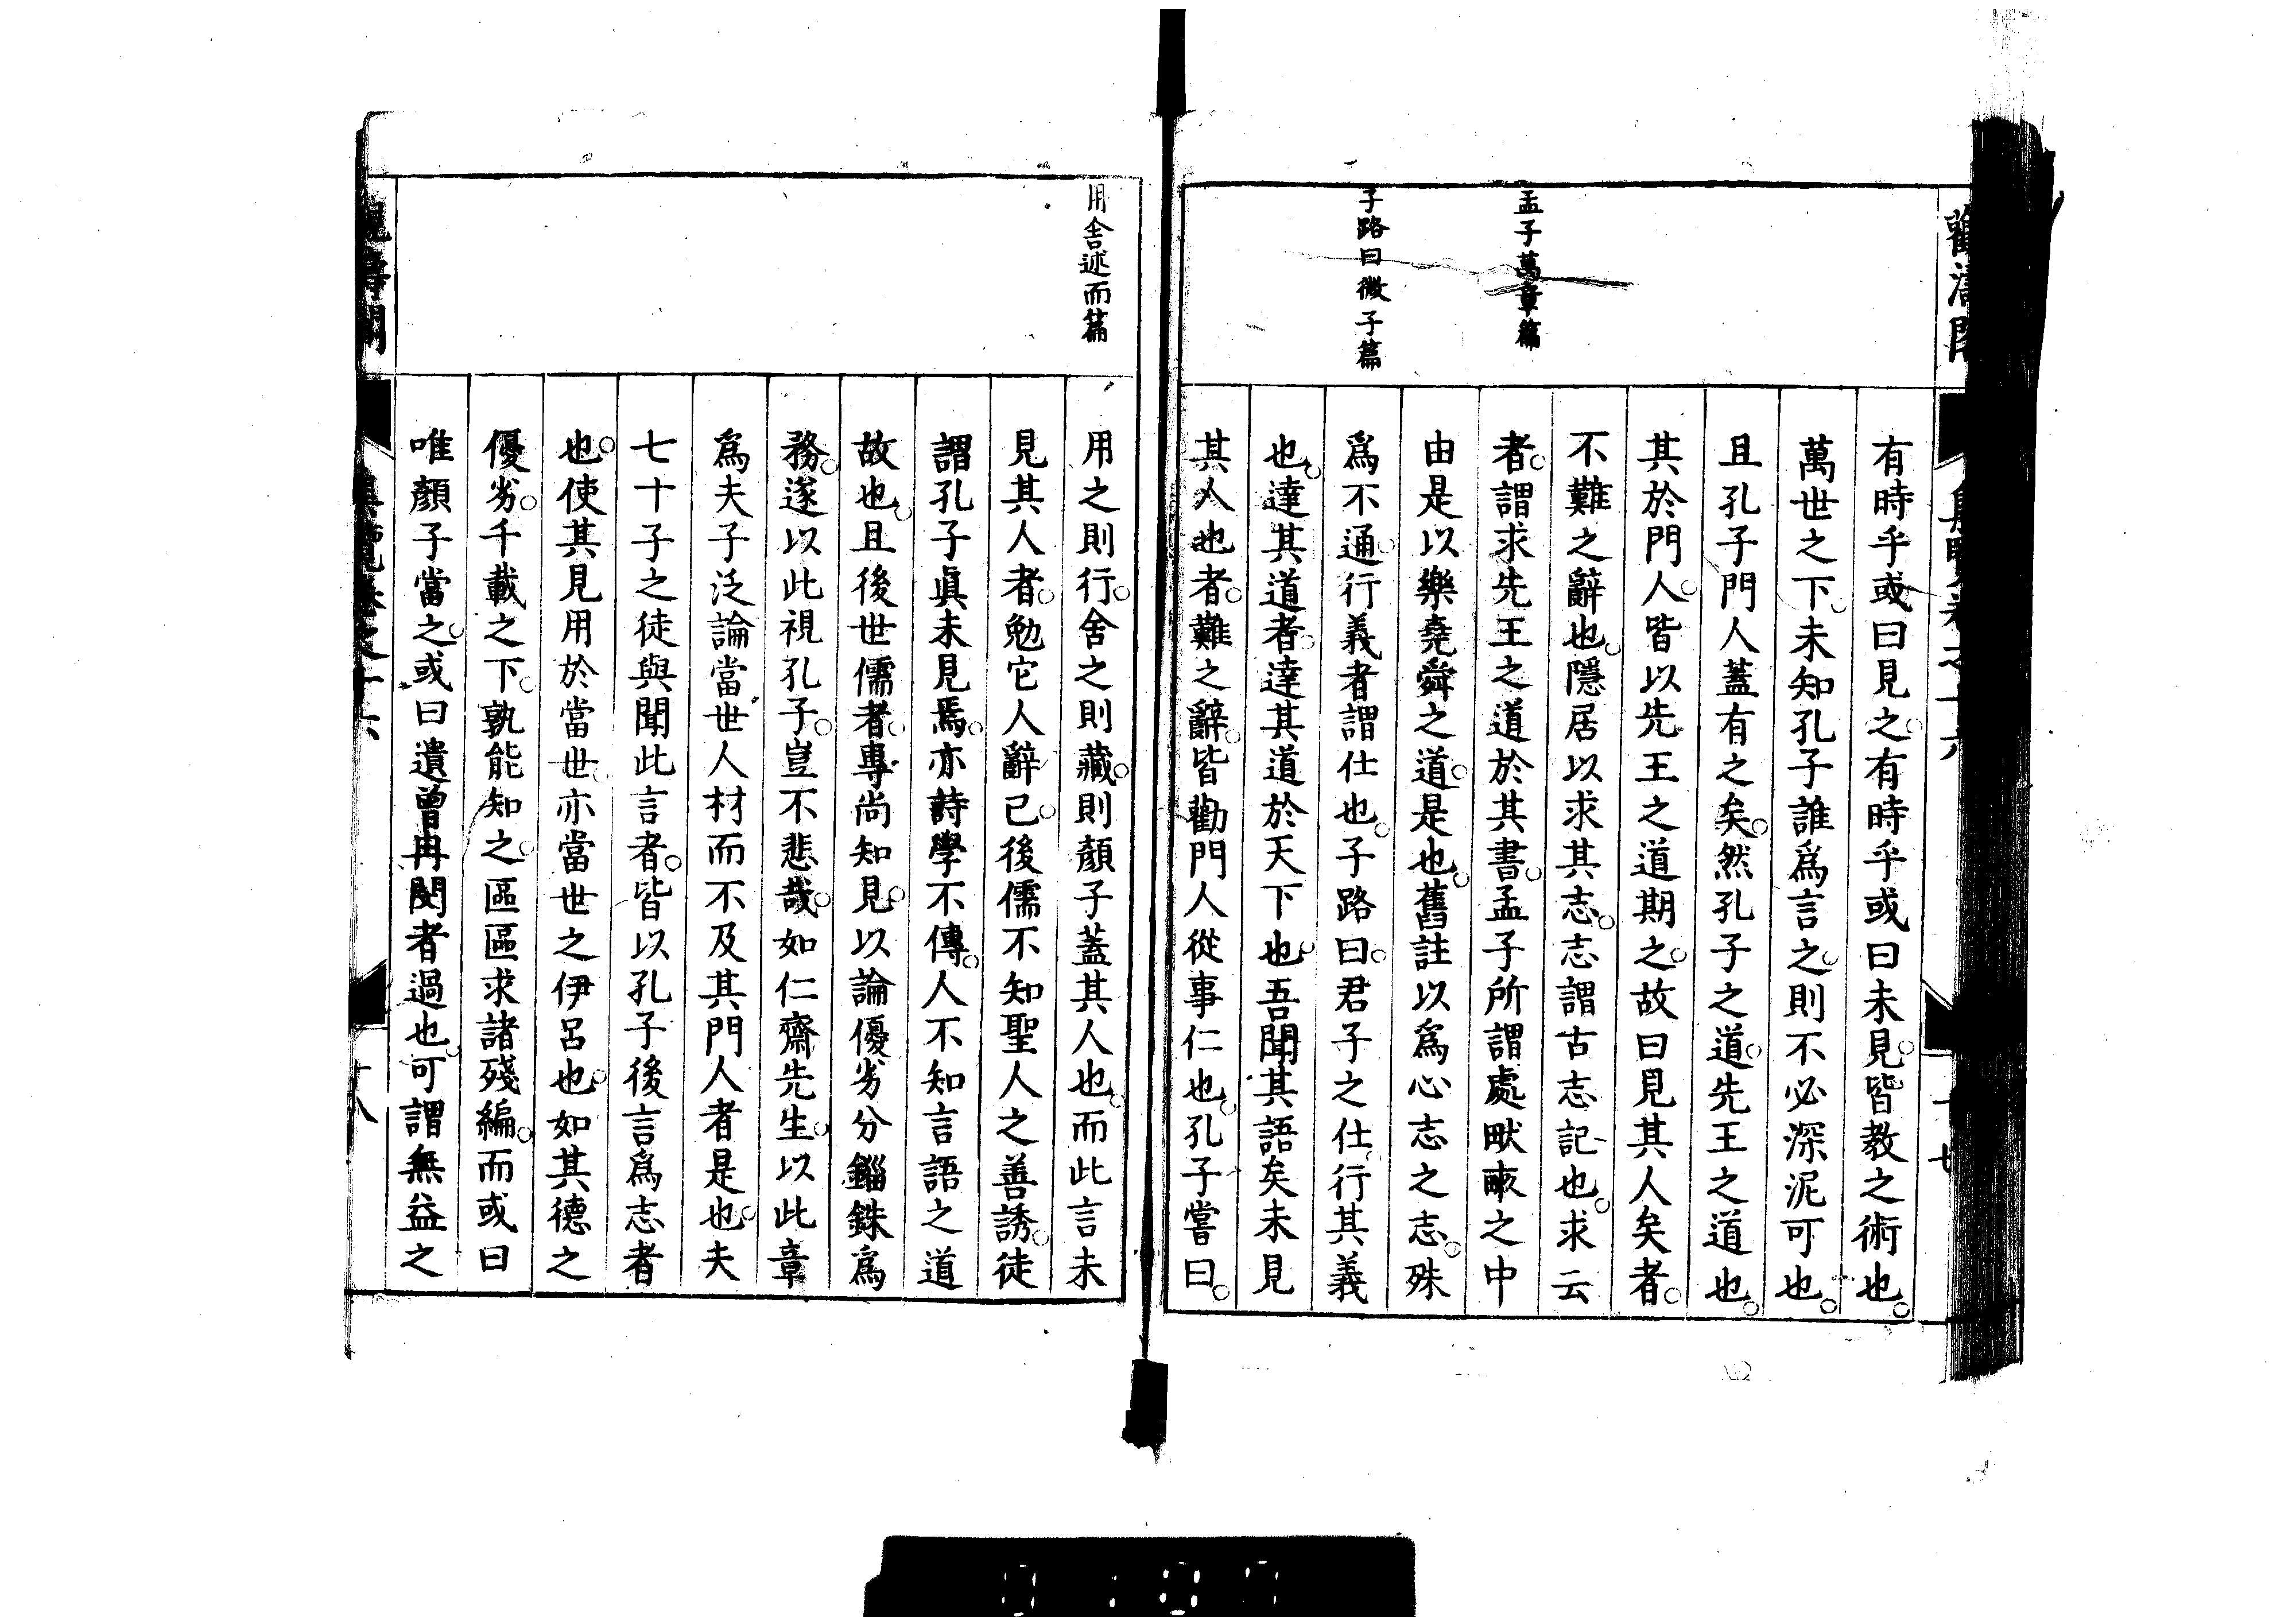 孟子萬章篇
子路曰微子篇
有時乎或曰見之。有時乎或曰未見。皆教之術也。
萬世之下。未知孔子誰爲言之。則不必深泥可也。
且孔子門人蓋有之矣。然孔子之道。先王之道也。
其於門人。皆以先王之道期之。故曰見其人矣者。
不難之辭也。隱居以求其志。志謂古志記也。求云
者。謂求先王之道於其書。孟子所謂處畎畝之中
由是以樂堯舜之道。是也。舊註以爲心志之志。殊
爲不通。行義者謂仕也。子路曰。君子之仕。行其義
也。達其道者。達其道於天下也。吾聞其語矣未見
其人也者。難之辭。皆勸門人從事仁也。孔子嘗曰。
用舍述而篇
用之則行。舍之則藏。則顏子蓋其人也。而此言未
見其人者。勉它人辭已。後儒不知聖人之善誘。徒
謂孔子眞未見焉。亦詩學不傳。人不知言語之道
故也。且後世儒者。專尚知見。以論優劣分錙銖爲
務。遂以此視孔子。豈不悲哉。如仁齋先生。以此章
爲夫子泛論當世人材而不及其門人者是也。夫
七十子之徒與聞此言者。皆以孔子後言爲志者
也。使其見用於當世。亦當世之伊呂也。如其德之
優劣。千載之下。孰能知之。區區求諸殘編。而或曰
唯顏子當之。或曰遺曾冉閔者過也。可謂無益之